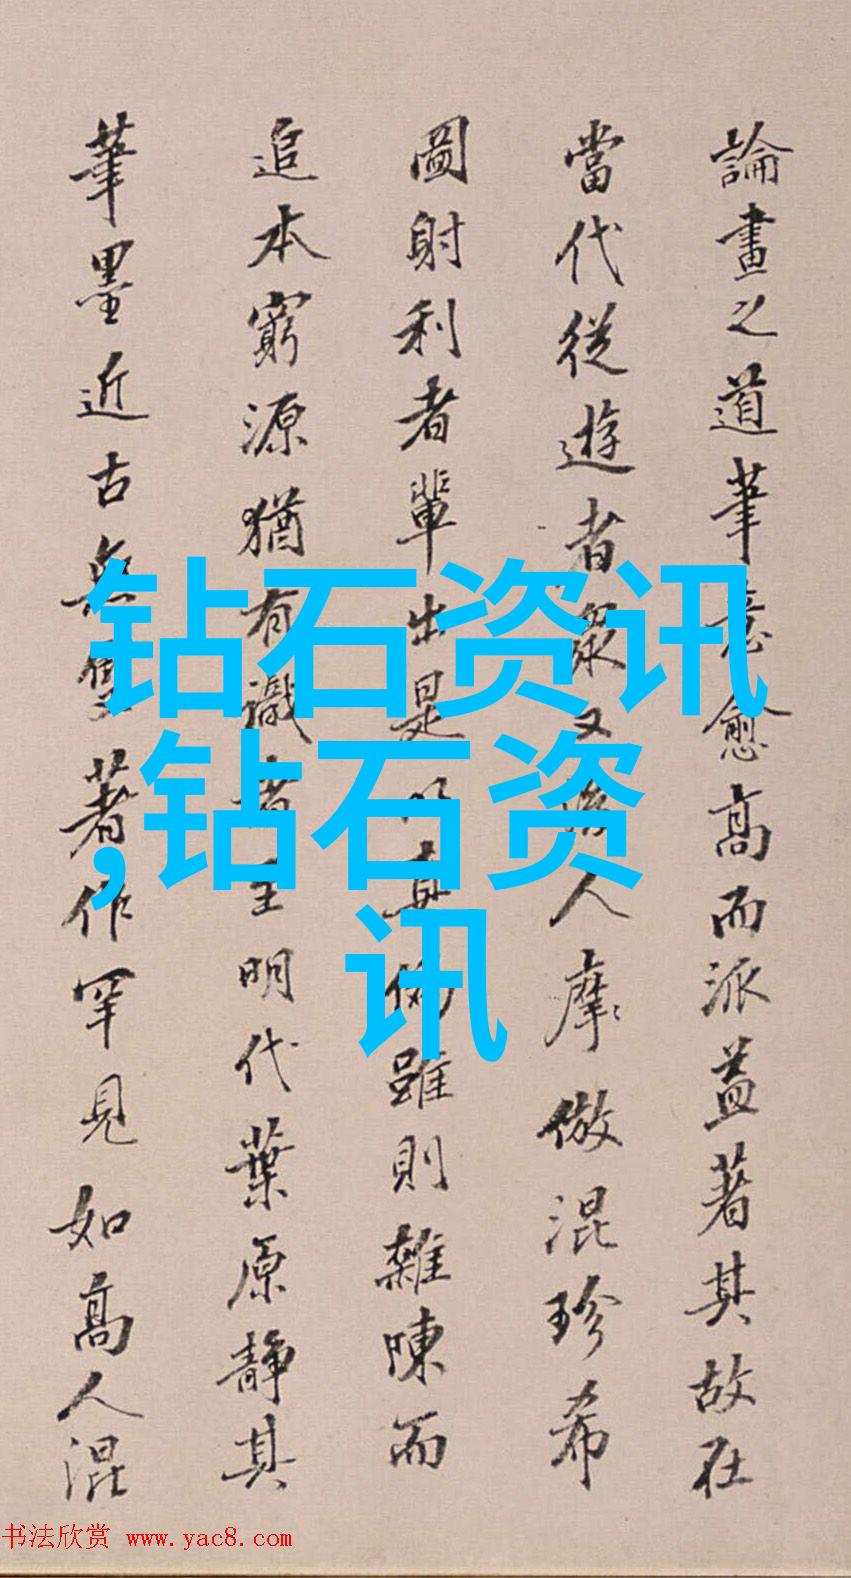 論畫之道筆意愈高而派益著其故在
當代從遊者衆又後人摩倣混珍希
圖射利者輩出是以真偽雖則雜陳而
追本窮源猶有識者至明代葉原静其
筆墨近古無雙著作罕見如高人混
钻石资讯
,钻石资
讯
书法欣赏 www.yac8.com